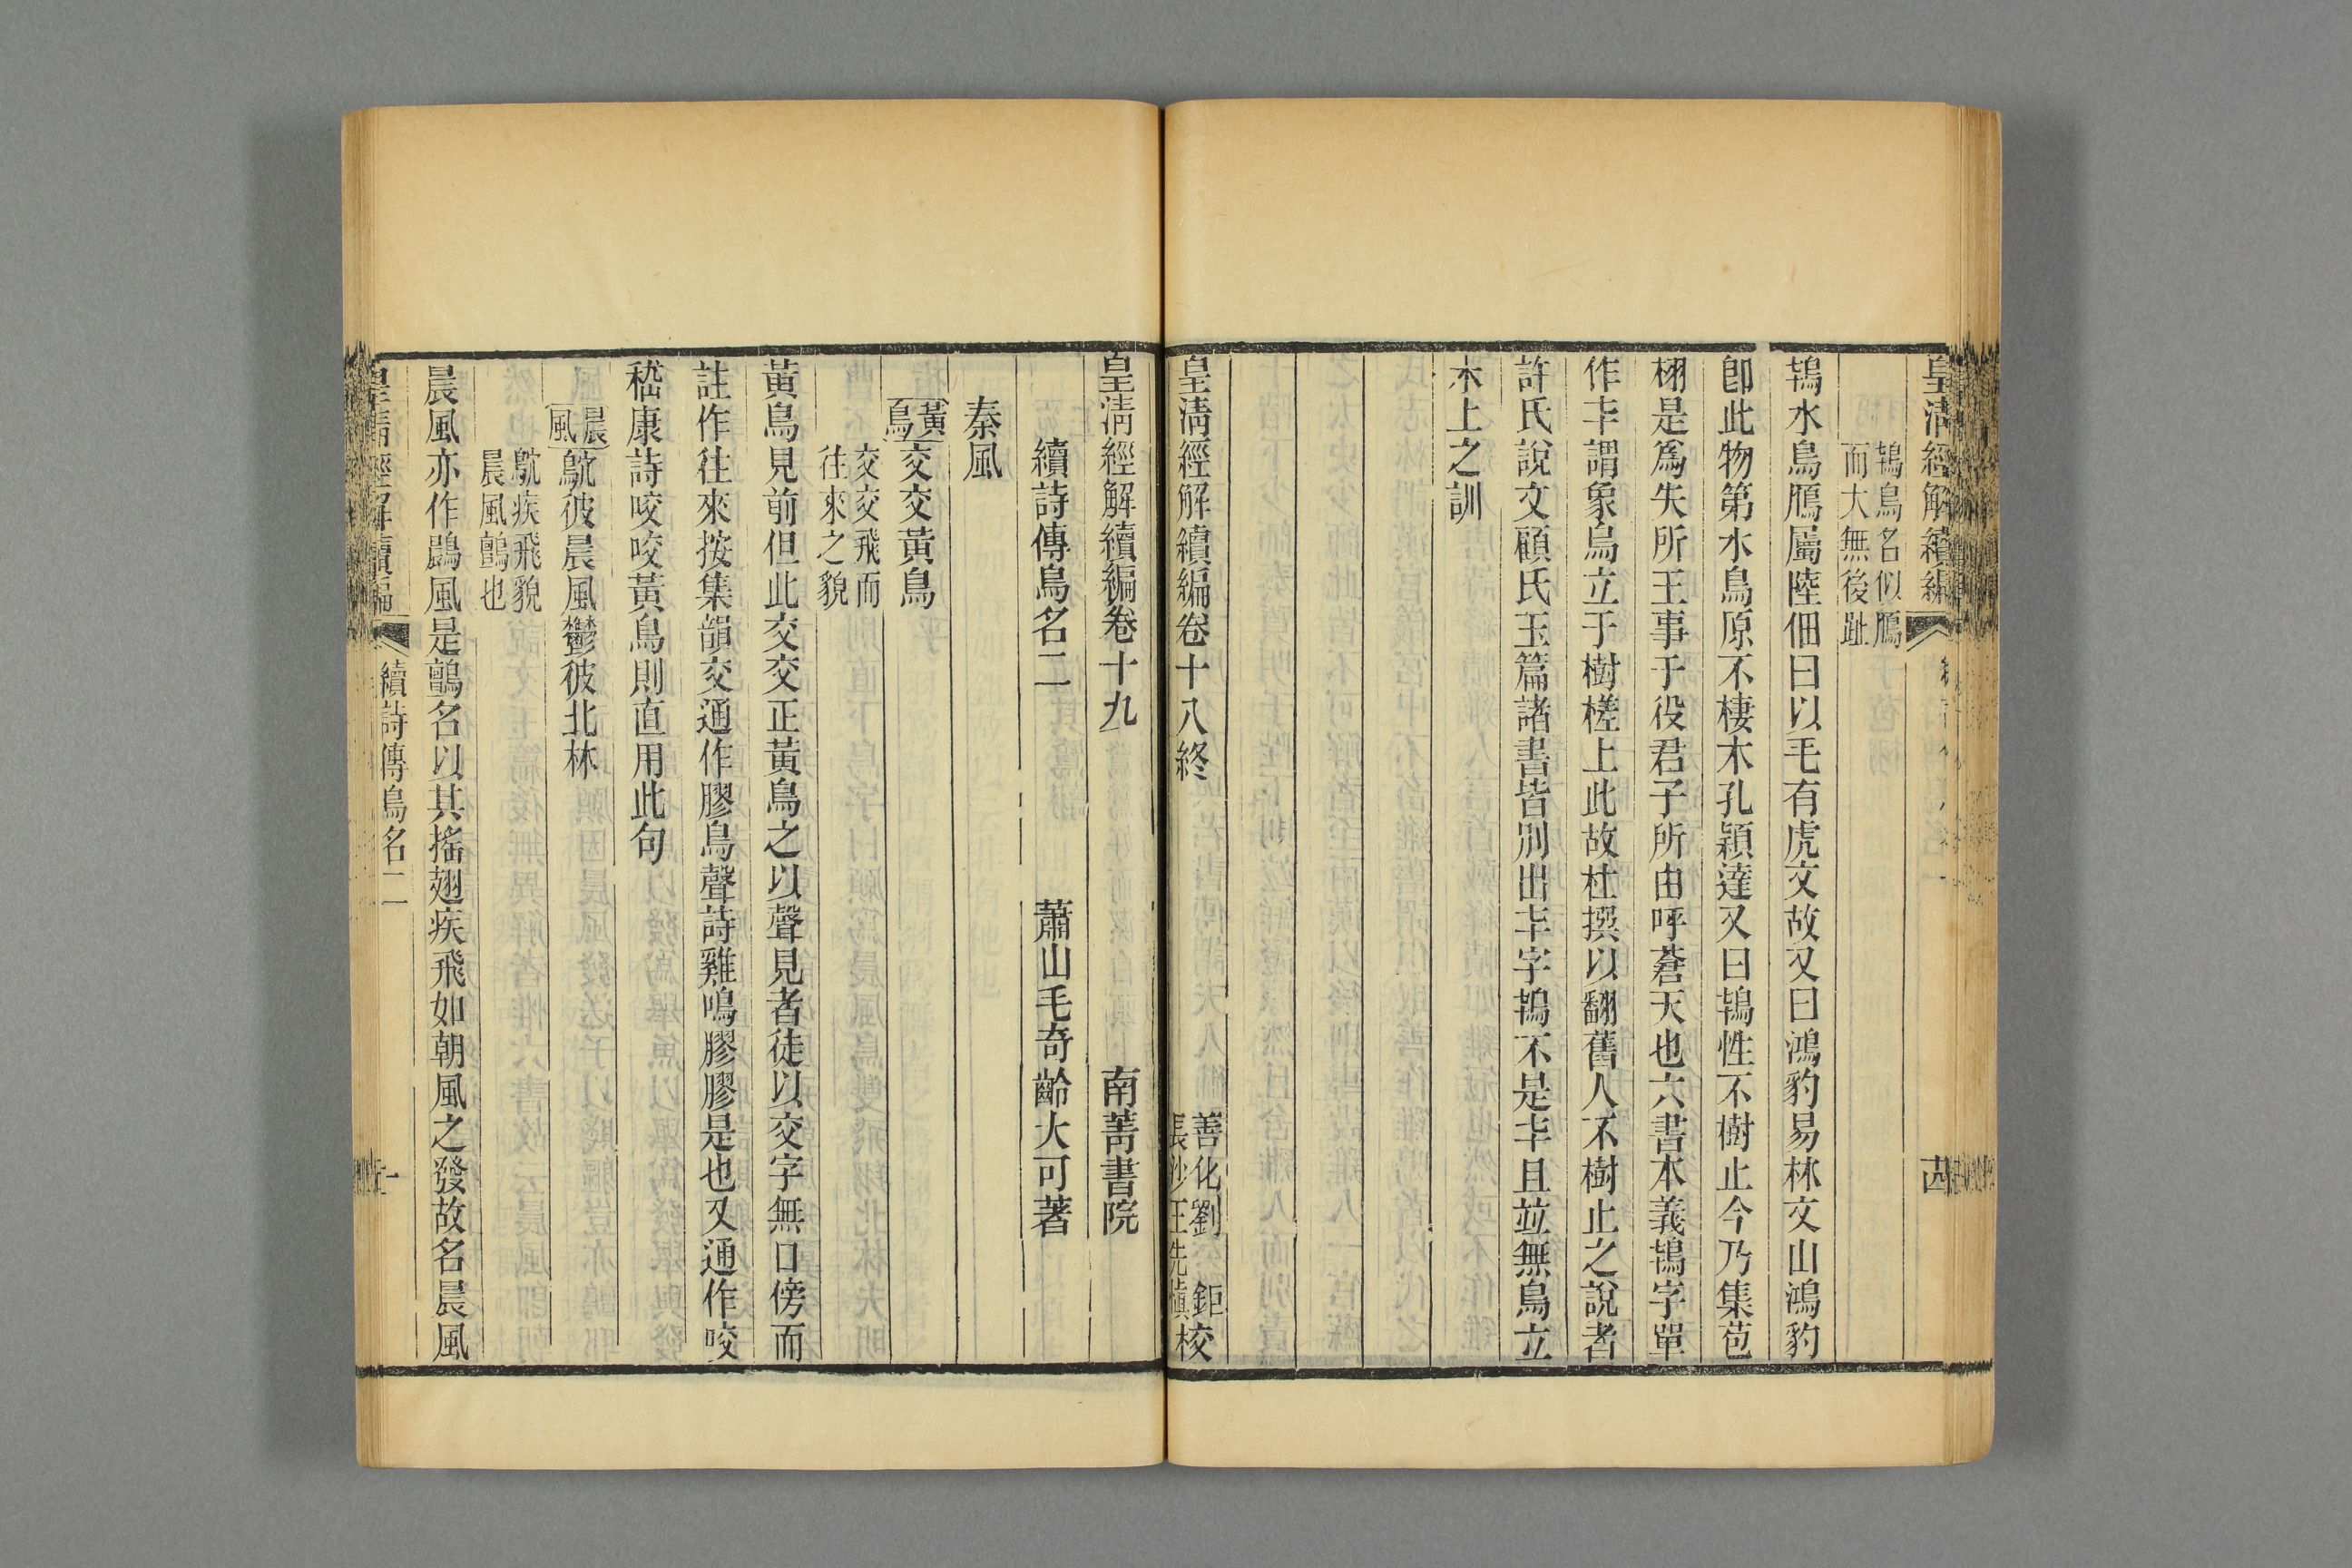 皇清經解續編
鴇鳥名似鴈
而大無後趾
鴇水鳥鴈屬陸佃曰以毛有虎文故又曰鴻豹易林文山鴻豹
卽此物第水鳥原不棲木孔穎達又曰鴇性不樹止今乃集苞
栩是爲失所王事于役君子所由呼蒼天也六書本義鴇字單
作𠦒謂象鳥立于樹槎上此故杜撰以翻舊人不樹止之說者
許氏說文顧氏玉篇諸書皆別出𠦒字鴇不是𠦒且竝無鳥立
木上之訓
皇清經解續編卷十八終
善化劉鉅
長沙王先愼校
皇清經解續編卷十九
南菁書院
續詩傳鳥名二
蕭山毛奇齡大可著
秦風
黃鳥
交交黃鳥
交交飛而
往來之貌
黃鳥見前但此交交正黃鳥之以聲見者徒以交字無口傍而
註作往來按集韻交通作膠鳥聲詩雞鳴膠膠是也又通作咬
嵇康詩咬咬黃鳥則直用此句
晨風
鴥彼晨風鬱彼北林
鴥疾飛貌
晨風鸇也
晨風亦作鷐風是鸇名以其搖翅疾飛如朝風之發故名晨風
皇清經解續編
續詩傳鳥名二
一